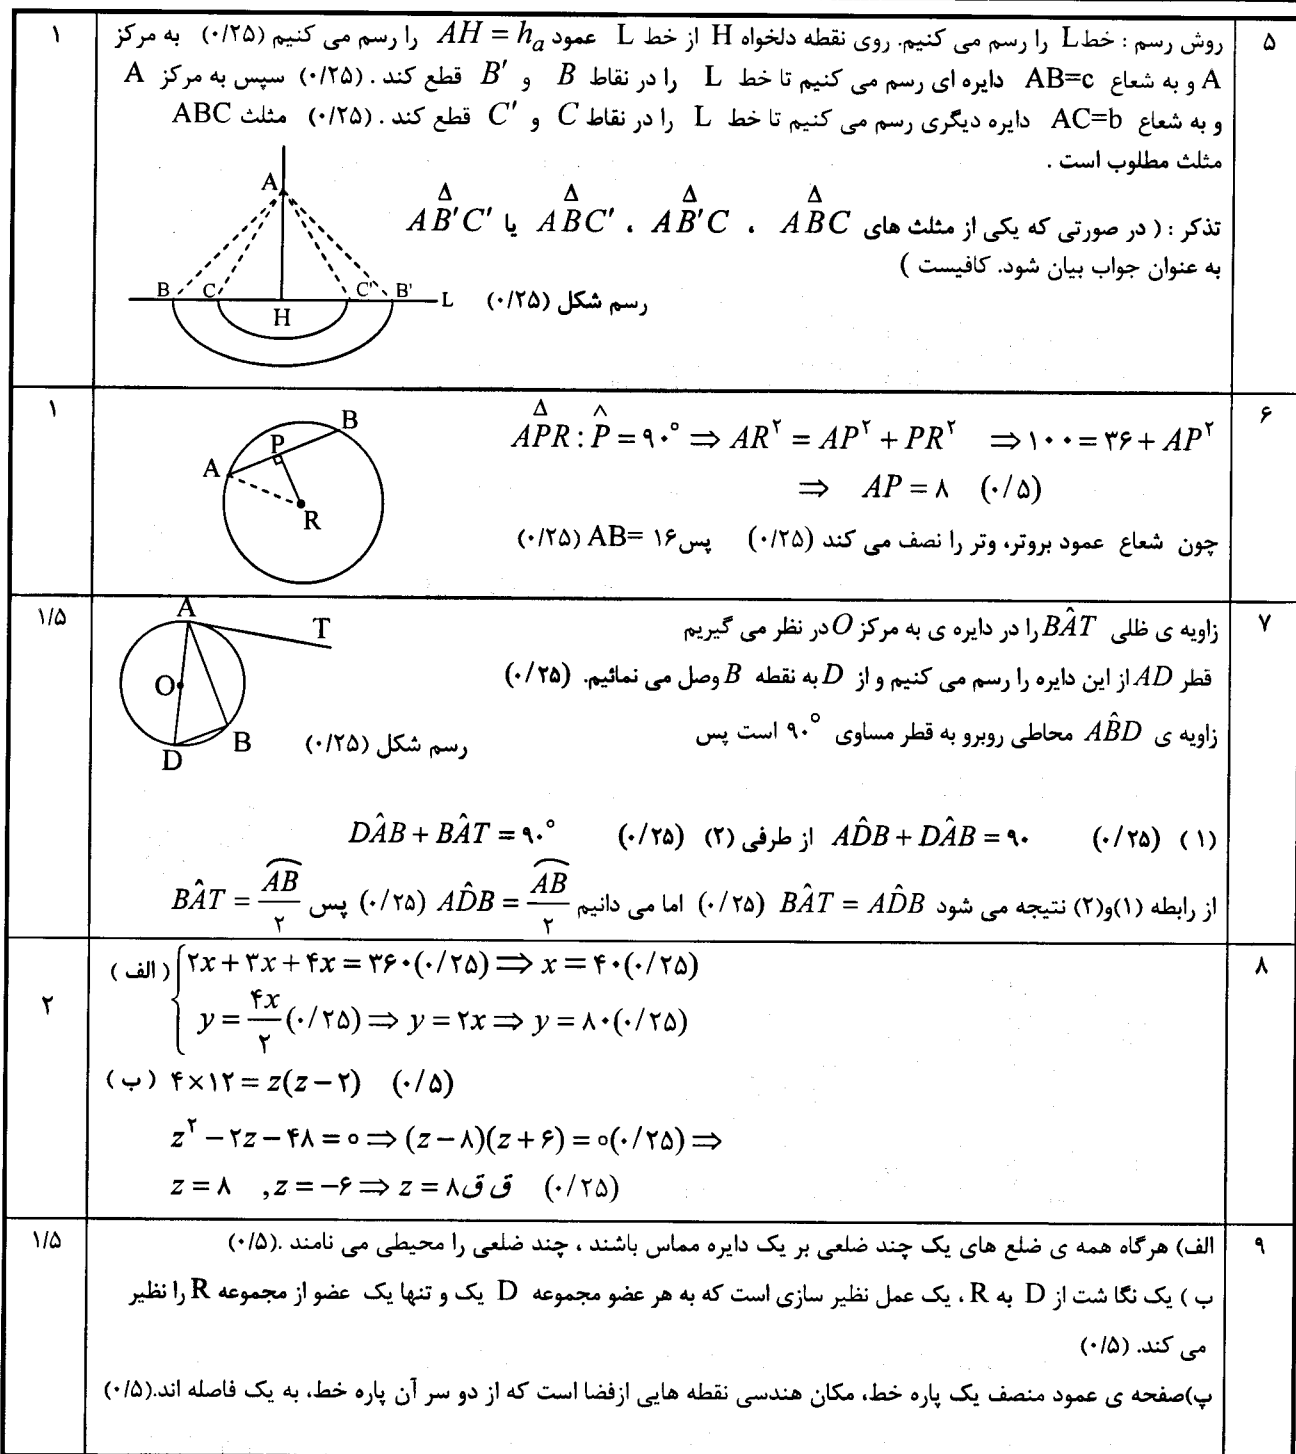 ۵
روش رسم : خط L را رسم می کنیم. روی نقطه دلخواه H از خط L عمود AH = h_a را رسم می کنیم (۰/۲۵) به مرکز
A و به شعاع AB=c دایره ای رسم می کنیم تا خط L را در نقاط B و B′ قطع کند . (۰/۲۵) سپس به مرکز A
و به شعاع AC=b دایره دیگری رسم می کنیم تا خط L را در نقاط C و C′ قطع کند . (۰/۲۵) مثلث ABC
مثلث مطلوب است .
تذکر : ( در صورتی که یکی از مثلث های ABC^Δ ، AB′C^Δ ، ABC′^Δ یا AB′C′^Δ
به عنوان جواب بیان شود. کافیست )
رسم شکل (۰/۲۵)
A
B C H C′ B′ L
۱
۶
APR^Δ : P̂ = ۹۰° ⇒ AR^۲ = AP^۲ + PR^۲ ⇒ ۱۰۰ = ۳۶ + AP^۲
⇒ AP = ۸ (۰/۵)
چون شعاع عمود بروتر، وتر را نصف می کند (۰/۲۵) پس AB= ۱۶ (۰/۲۵)
A P B
R
۱
۷
زاویه ی ظلی BÂT را در دایره ی به مرکز O در نظر می گیریم
قطر AD از این دایره را رسم می کنیم و از D به نقطه B وصل می نمائیم. (۰/۲۵)
زاویه ی AB̂D محاطی روبرو به قطر مساوی ۹۰° است پس
رسم شکل (۰/۲۵)
A T
O
D B
(۱) (۰/۲۵) AD̂B + DÂB = ۹۰ از طرفی (۲) (۰/۲۵) DÂB + BÂT = ۹۰°
از رابطه (۱)و(۲) نتیجه می شود BÂT = AD̂B (۰/۲۵) اما می دانیم AD̂B = AB⌢/۲ (۰/۲۵) پس BÂT = AB⌢/۲
۱/۵
۸
الف ) ۲x + ۳x + ۴x = ۳۶۰ (۰/۲۵) ⇒ x = ۴۰ (۰/۲۵)
y = ۴x/۲ (۰/۲۵) ⇒ y = ۲x ⇒ y = ۸۰ (۰/۲۵)
ب ) ۴×۱۲ = z(z−۲) (۰/۵)
z^۲ − ۲z − ۴۸ = ۰ ⇒ (z−۸)(z+۶) = ۰ (۰/۲۵) ⇒
z = ۸ , z = −۶ ⇒ z = ۸ ق ق (۰/۲۵)
۲
۹
الف) هرگاه همه ی ضلع های یک چند ضلعی بر یک دایره مماس باشند ، چند ضلعی را محیطی می نامند .(۰/۵)
ب ) یک نگا شت از D به R ، یک عمل نظیر سازی است که به هر عضو مجموعه D یک و تنها یک عضو از مجموعه R را نظیر
می کند. (۰/۵)
پ)صفحه ی عمود منصف یک پاره خط، مکان هندسی نقطه هایی ازفضا است که از دو سر آن پاره خط، به یک فاصله اند.(۰/۵)
۱/۵